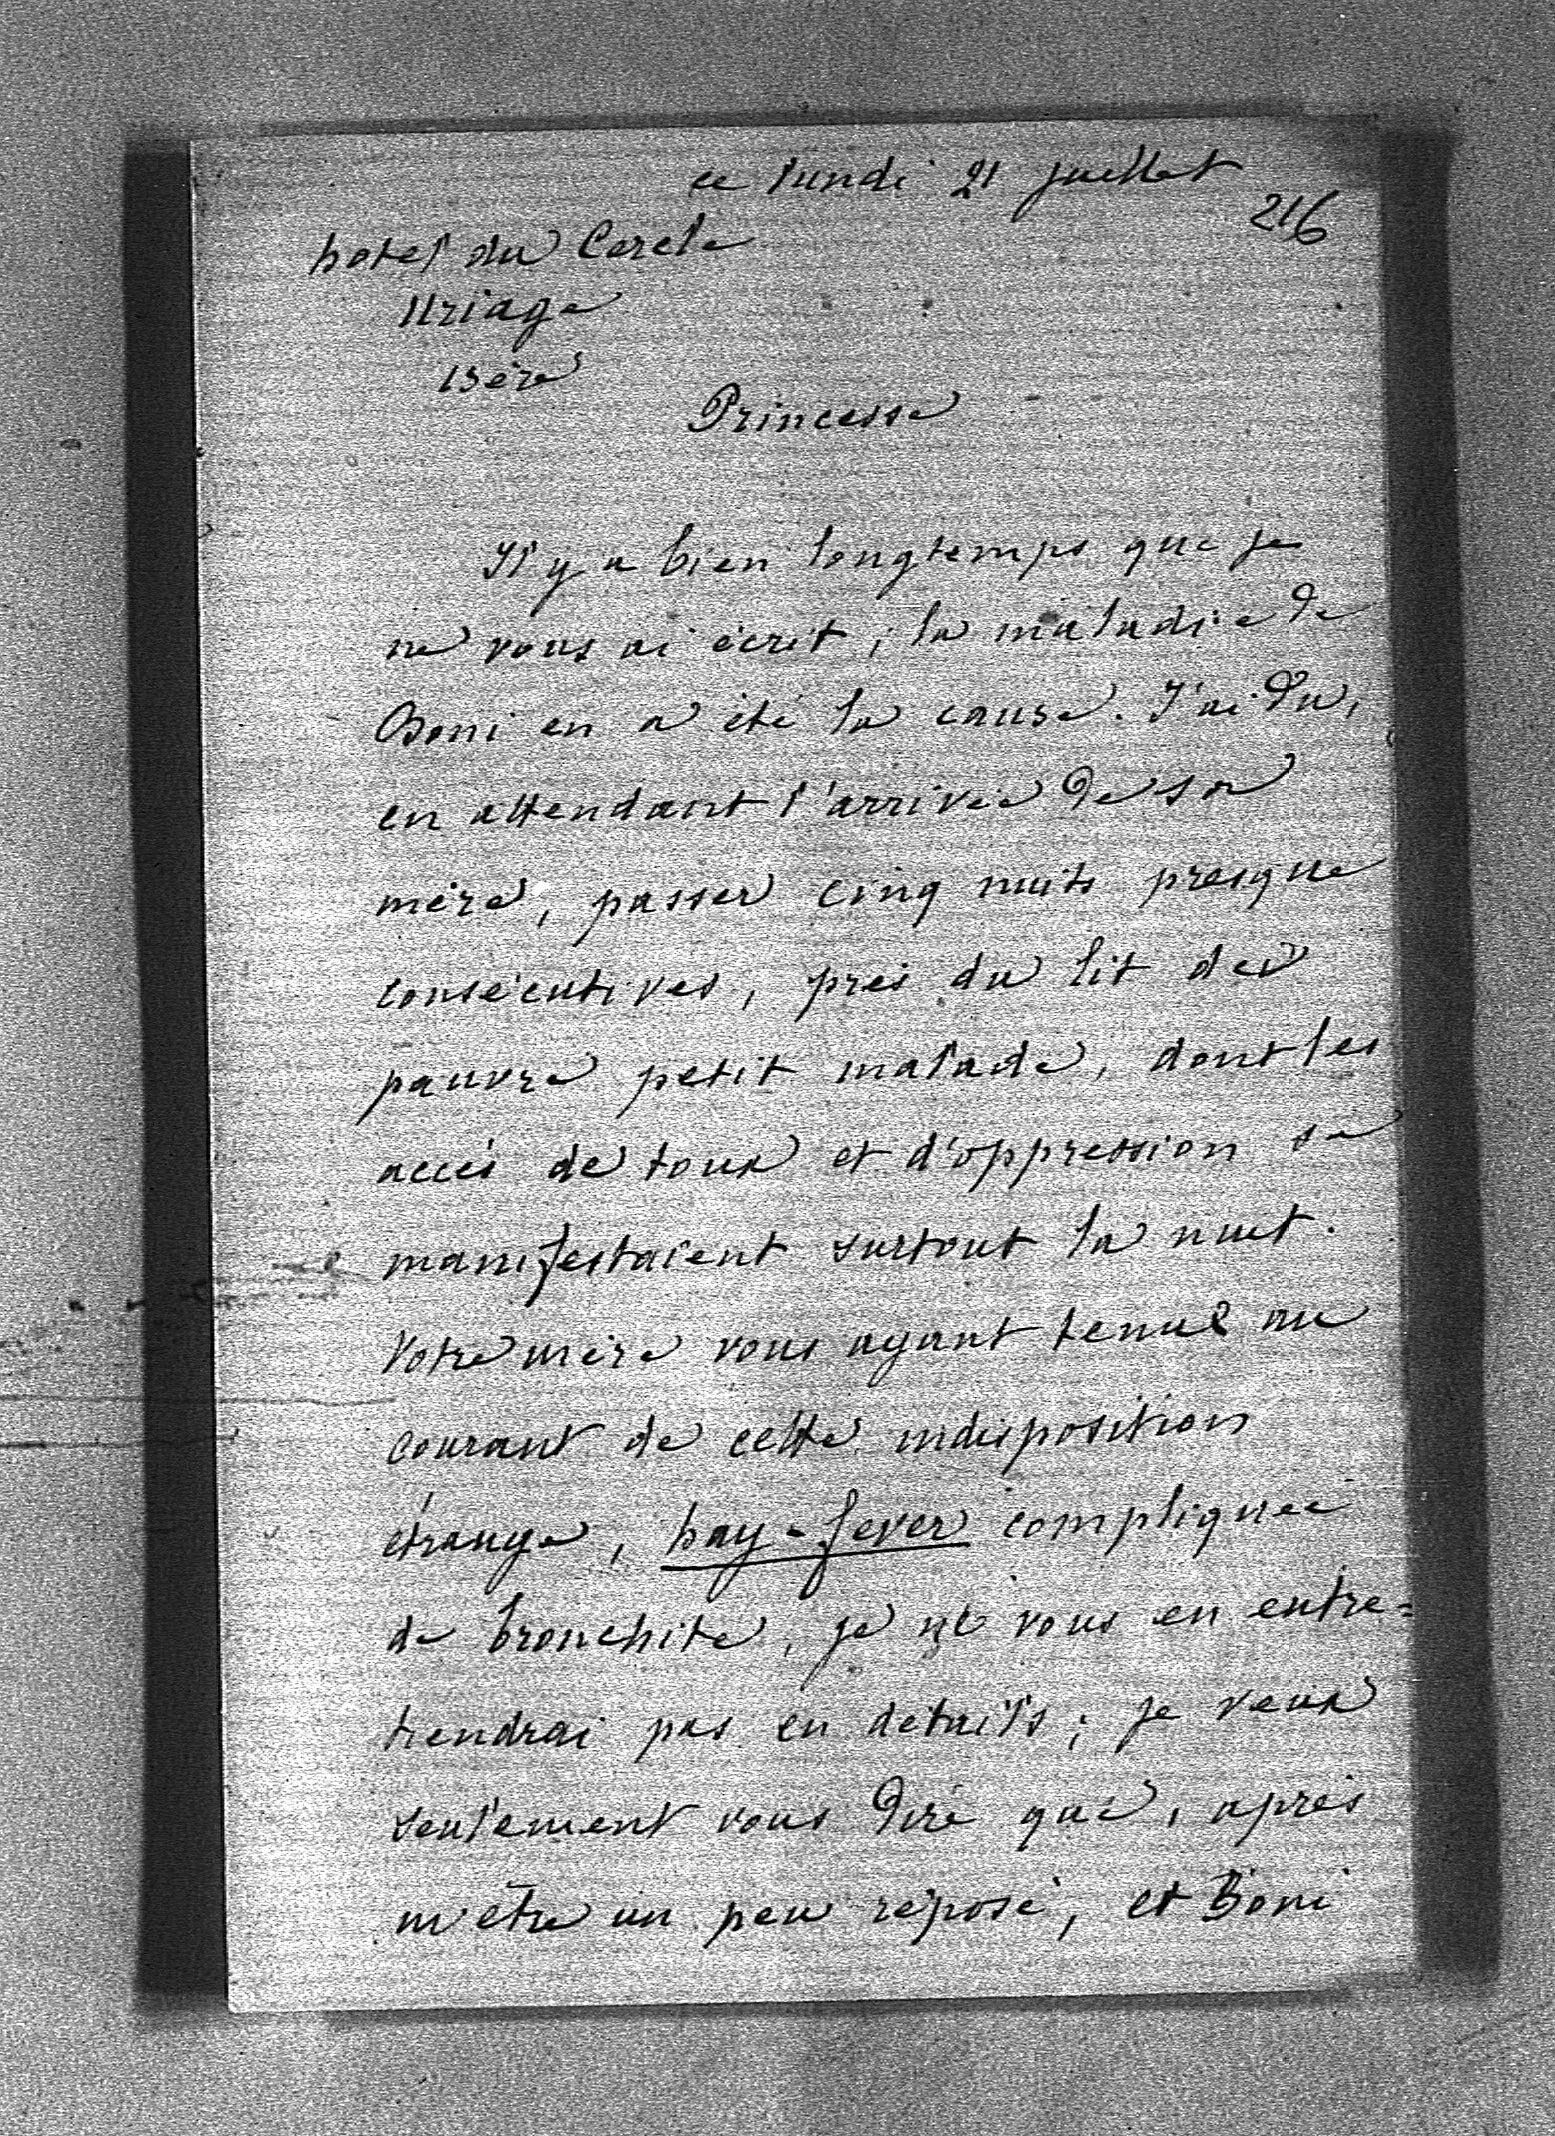 ce lundi 21 juillet
216
hotel du Cercle
Uriage
Isère
Princesse
Il y a bien longtemps que je
ne vous ai écrit ; la maladie de
Boni en a été la cause. J'ai du,
en attendant l'arrivée de sa
mère, passer cinq nuits presque
consécutives, près du lit de
pauvre petit malade, dont les
accès de toux et d'oppression se
manifestaient surtout la nuit.
Votre mère vous ayant tenue au
courant de cette indisposition
étrange, hay-fever compliquée
de bronchite, je ne vous en entre=
tiendrai pas en détails ; je veux
seulement vous dire que, après
m'être un peu reposé, et Boni